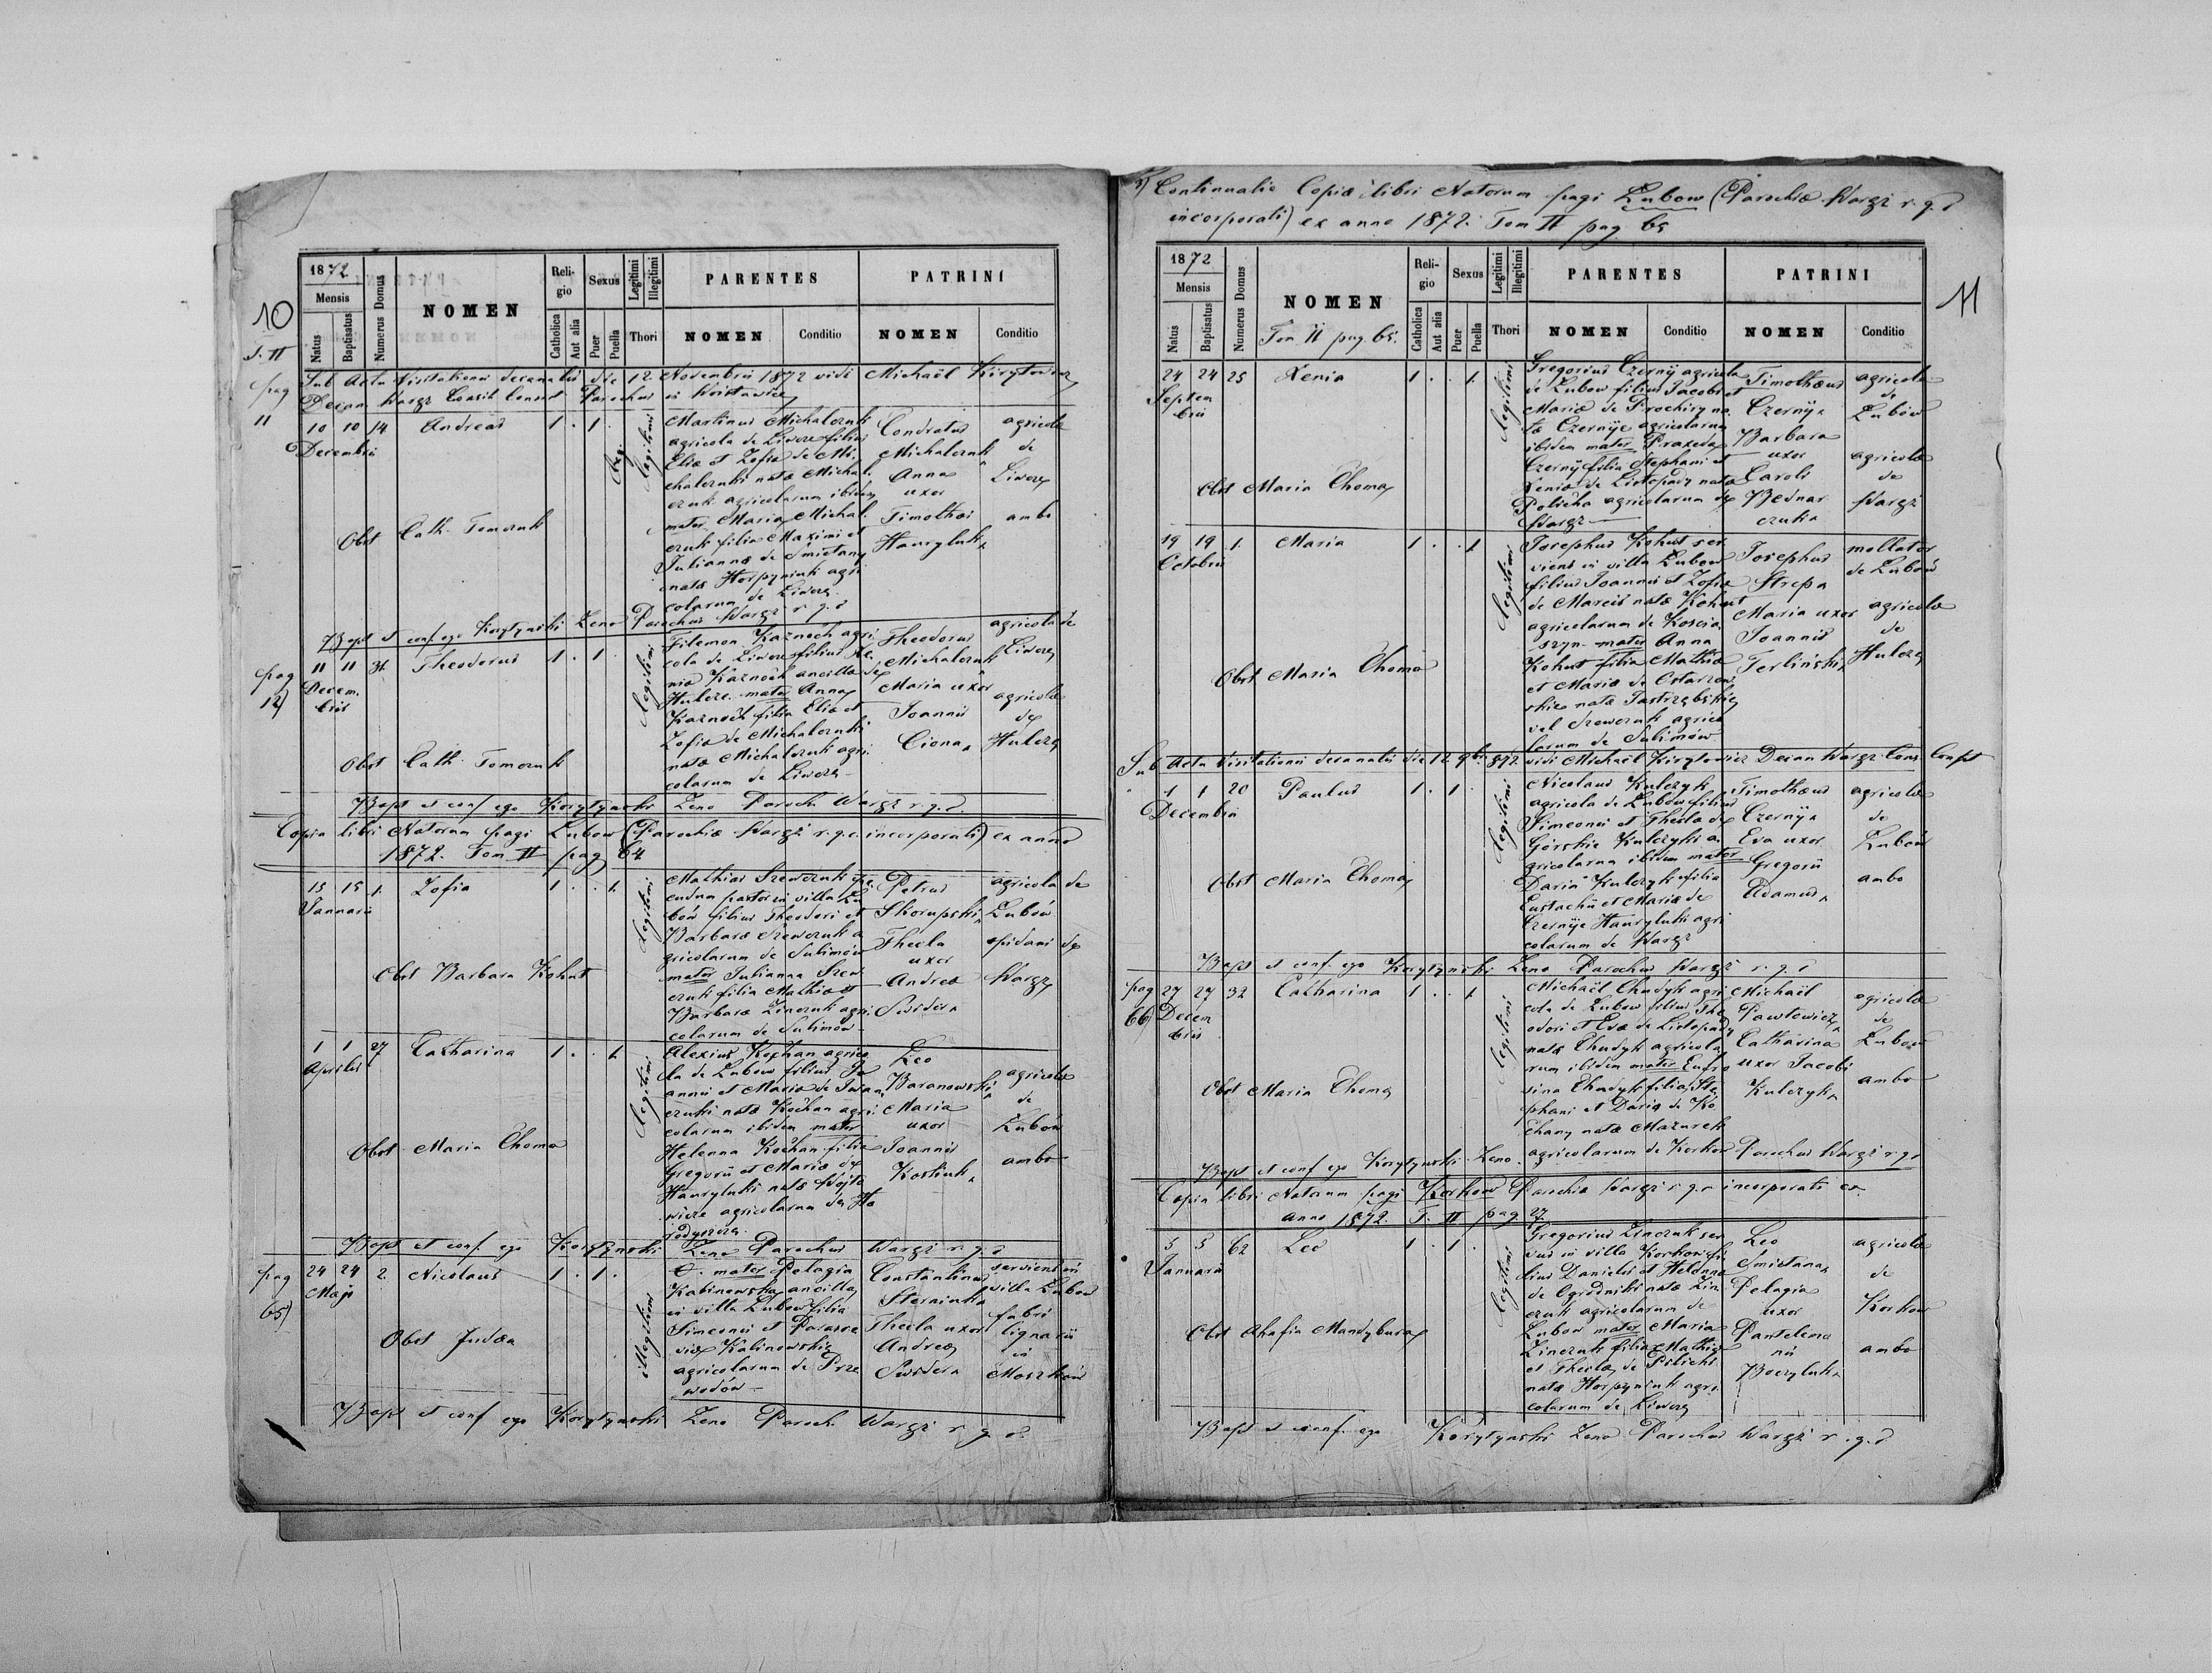 10
T. II
1872
Mensis
Natus
Baptisatus
Numerus Domus
NOMEN
Religio
Catholica
Aut alia
Sexus
Puer
Puella
Legitimi
Illegitimi
Thori
PARENTES
NOMEN
Conditio
PATRINI
NOMEN
Conditio
Sub Actu Visitationis decanalis die 12 Novembris 1872 vidi Michaël
Parochus in
pag
11
10 10 14 Andreas 1 . 1 .
Decembris
Legitimi
Martinus Michalczuk
agricola de Liwcze filius
Eliæ et Zofiæ de Mi
chalczuki natæ Michal
czuk agricolarum ibidem
mater Maria Michal
czuk filia Maximi et
Juliannæ de Smietany
natæ Horpyniuk agri
colarum de Liwcze
Condratus
Michalczuk
Anna
uxor
Timothei
Hauryluk
agricolæ
de
Liwcze
ambo
Obst Cath. Tomczuk
Bapt et conf. ego Korytynski Zeno Parochus Waręż r. g. c.
pag
12)
11 11 31 Theodorus 1 . 1 .
Decem
bris
Legitimi
Filemon Kaznoch agri
cola de Liwcze filius Xe
niæ Kaznoch ancilla de
Hulcze mater Anna
Kaznoch filia Eliæ et
Zofiæ de Michalczuki
natæ Michalczuk agri
colarum de Liwcze
Theodorus
Michalczuk
Maria uxor
Joannis
Ciona
agricola de
Liwcze
agricolæ
de
Hulcze
Obst Cath. Tomczuk
Bapt et conf ego Korytynski Zeno Paroch Waręż r. g. c.
Copia libri Natorum pagi Lubow (Parochiæ Waręż r. g. c. incorporati) ex anno
1872. Tom II pag 64.
15 15 1. Zofia 1 . . 1.
Januarii
Legitimi
Mathias Szewczuk
pastor in villa Lu
bów filius Theodori et
Barbaræ Szewczuk a
gricolarum de Sulimów
mater Julianna Szew
czuk filia Mathiæ et
Barbaræ Zinczuk agri
colarum de Sulimów
Petrus
Skorupski
Thecla
uxor
Andreæ
Swidera
agricola de
Lubów
opidani de
Waręż
Obst Barbara Kohut
1 1 27 Catharina 1 . . 1.
Aprilis
Legitimi
Alexius Kochan agrico
la de Lubow filius Jo
annis et Mariæ de Iwan
czuki natæ Kochan agri
colarum ibidem mater
Helenna Kochan filia
Gregorii et Mariæ de
Hauryluki natæ Wojto
wicze agricolarum de Ho
rodyszcze
Leo
Baranowski
Maria
uxor
Joannis
Kostiuk
agricolæ
de
Lubów
ambo
Obst Maria Choma
Bapt et conf. ego Korytynski Zeno Parochus Waręż r. g. c
pag
65)
24 24 2 Nicolaus 1 . 1 .
Maji
Illegitimi
mater Pelagia
Kalinowska ancilla
in villa Lubow filia
Simeonis et Parasce
viæ Kalinowskie
agricolarum de Prze
wodów
Constantinus
Sterniuk
Thecla uxor
Andreæ
Swidera
serviens in
villa Lubow
fabri
lignarii
in
Moszków
Obst Judæa
Bapt et conf ego Korytynski Zeno Paroch. Waręż r. g. c.
Continuatio Copiæ libri Natorum pagi Lubow (Parochiæ Waręż r. g. c
incorporati) ex anno 1872. Tom II pag. 65
11
1872
Mensis
Natus
Baptisatus
Numerus Domus
NOMEN
Tom II pag. 65.
Religio
Catholica
Aut alia
Sexus
Puer
Puella
Legitimi
Illegitimi
Thori
PARENTES
NOMEN
Conditio
PATRINI
NOMEN
Conditio
24 24 25 Xenia 1 . . 1.
Septem
bris
Legitimi
Gregorius Czernij agricola
in Lubow filius Jacobi et
Mariæ de Prochiry na
tæ Czernije agricolarum
ibidem mater Praxeda
Czernij filia Stephani et
Xeniæ de Listopady natæ
Policha agricolarum de
Waręż
Timothæus
Czernij
Barbara
uxor
Caroli
Bednar
czuk
agricola
de
Lubów
agricolæ
de
Waręż
Obst Maria Choma
19 19 1. Maria 1 . . 1
Octobris
Legitimi
Josephus Kohut ser
viens in villa Lubow
filius Joannis et Zofiæ
de Marcis natæ Kohut
agricolarum de Koscia
szyn mater Anna
Kohut filia Mathiæ
et Mariæ de Ostarzew
skie natæ Jastrzębskie
vel Szewczuk agrico
larum de Sulimów
Josephus
Strepa
Maria uxor
Joannis
Terlinski
mollator
de Lubów
agricolæ
de
Hulcze
Obst Maria Choma
Sub Actu Visitationis decanalis die 12 9bris 872 vidi Michaël Decan Waręż Cons. Consist
1 1 20 Paulus 1 . 1 .
Decembris
Legitimi
Nicolaus Kulczyk
agricola de Lubow filius
Simeonis et Theclæ de
Górskie Kulczyki a
gricolarum ibidem mater
Daria Kulczyk filia
Eustachii et Mariæ de
Czernije Hauryluki agri
colarum de Waręż
Timothæus
Czernij
Eva uxor
Gregorii
Adamus
agricolæ
de
Lubów
ambo
Obst Maria Choma
Bapt et conf. ego Korytynski Zeno Parochus Waręż r. g. c
pag
66)
27 27 32 Catharina 1 . . 1
Decem
bris
Legitimi
Michaël Chudyk agri
cola de Lubow filius The
odori et Evæ de Listopady
natæ Chudyk agricola
rum ibidem mater Eufro
sina Chudyk filia Ste
phani et Dariæ de Ko
chany natæ Mazurek
agricolarum de Korkow
Michaël
Pawłowicz
Catharina
uxor Jacobi
Kulczyk
agricolæ
de
Lubow
ambo
Obst Maria Choma
Bapt et conf ego Korytynski Zeno Parochus Waręż r. g. c
Copia libri Natorum pagi Korkow Parochiæ Waręż r. g. c incorporati ex
anno 1872. T. II pag 27
5 5 62 Leo 1 . 1 .
Januarii
Legitimi
Gregorius Zinczuk ser
vus in villa Korkow fi
lius Danielis et Helenna
de Ogrodniki natæ Zin
czuk agricolarum de
Lubow mater Maria
Zinczuk filia Mathiæ
et Theclæ de Pilichi
natæ Horpyniuk agri
colarum de Liwcze
Leo
Smietana
Pelagia
uxor
Pantelemo
nis
Boczyluk
agricolæ
de
Korkow
ambo
Obst Ahafia Mandybura
Bapt et conf. ego Korytynski Zeno Parochus Waręż r. g. c